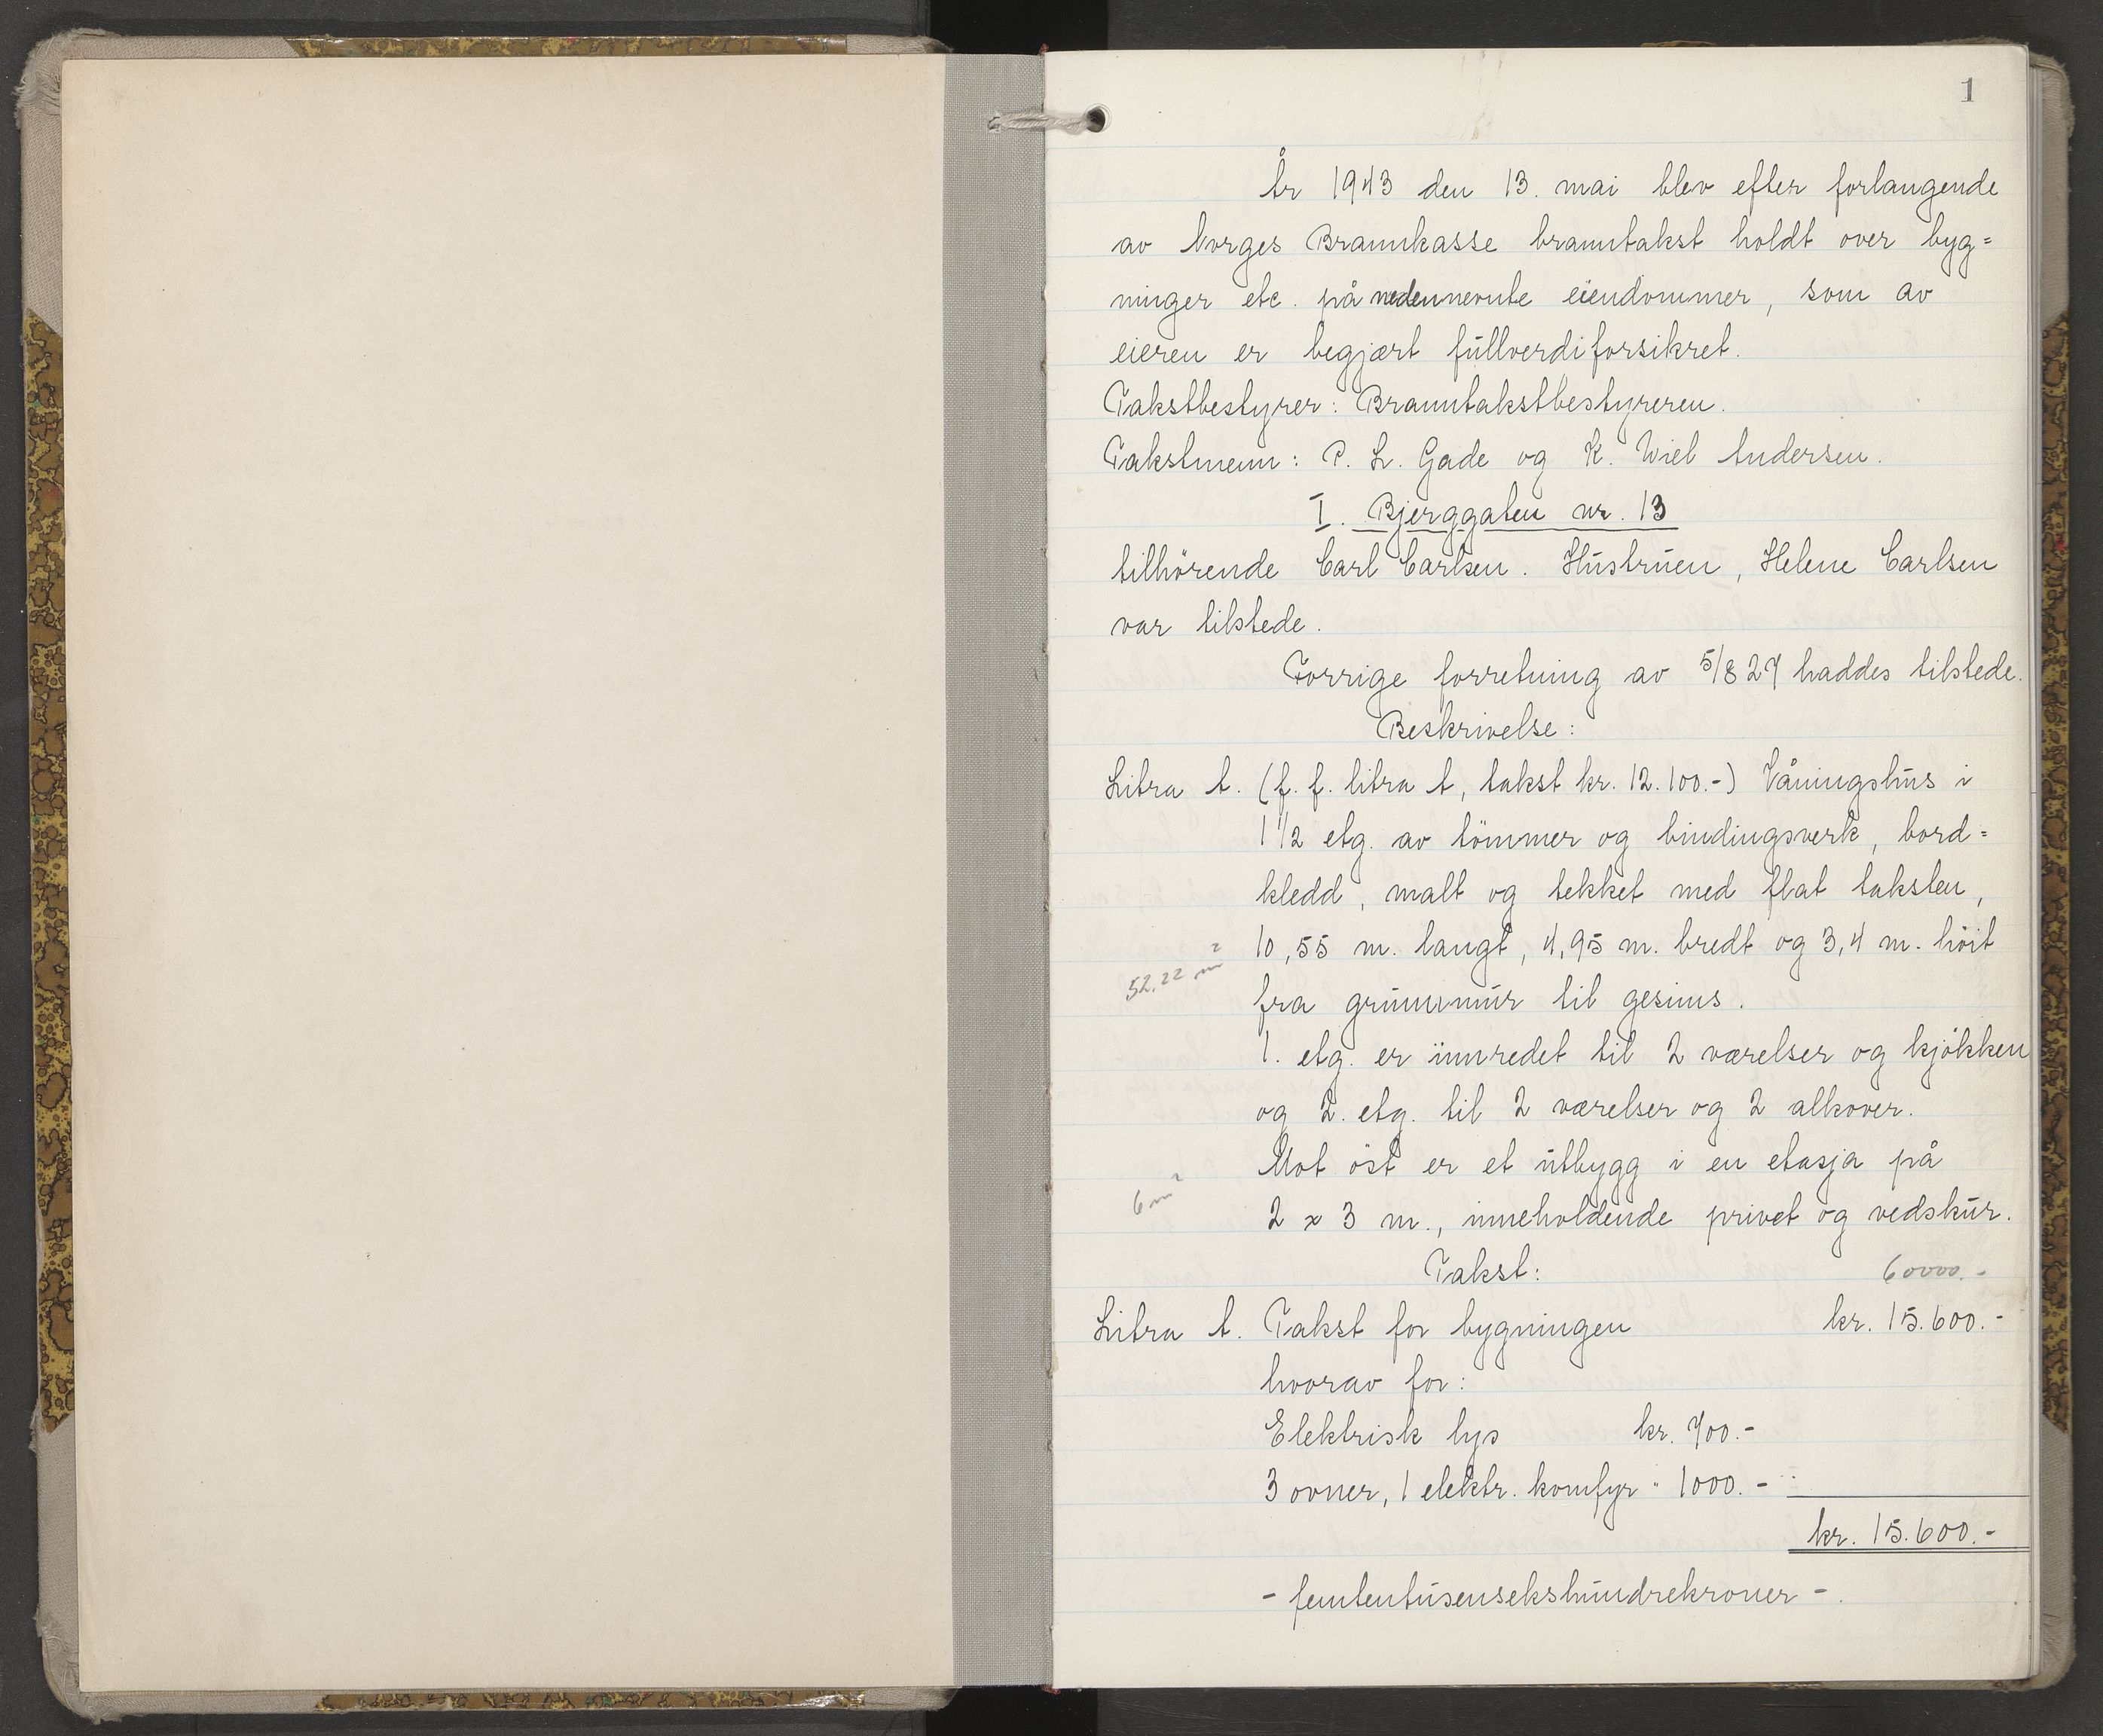 1
År 1943 den 13. mai blev efter forlangende
av Norges Brannkasse branntakst holdt over byg=
ninger etc. på nedennevnte eiendommer, som av
eieren er begjært fullverdiforsikret.
Takstbestyrer: Branntakstbestyreren.
Takstmenn: P. L. Gade og K. Wiel Andersen.
I. Bjerggaten nr. 13
tilhörende Carl Carlsen. Hustruen, Helene Carlsen
var tilstede.
Forrige forretning av 5/8 27 haddes tilstede.
Beskrivelse:
Litra A. (f. f. litra A, takst kr. 12.100.-) Våningshus i
1 1/2 etg. av tömmer og bindingsverk, bord=
kledd, malt og tekket med flat taksten,
52.22 m² 10,55 m. langt, 4,95 m. bredt og 3,4 m. höit
fra grunnmur til gesims.
1. etg. er innredet til 2 værelser og kjökken
og 2. etg. til 2 værelser og 2 alkover.
Mot öst er et utbygg i en etasja på
6 m² 2 x 3 m., inneholdende privet og vedskur.
Takst: 60000.-
Litra A. Takst for bygningen kr. 15.600.-
hvorav for:
Elektrisk lys kr. 700.-
3 ovner, 1 elektr. komfyr " 1000.-
kr. 15.600.-
- femtentusensekshundrekroner -.